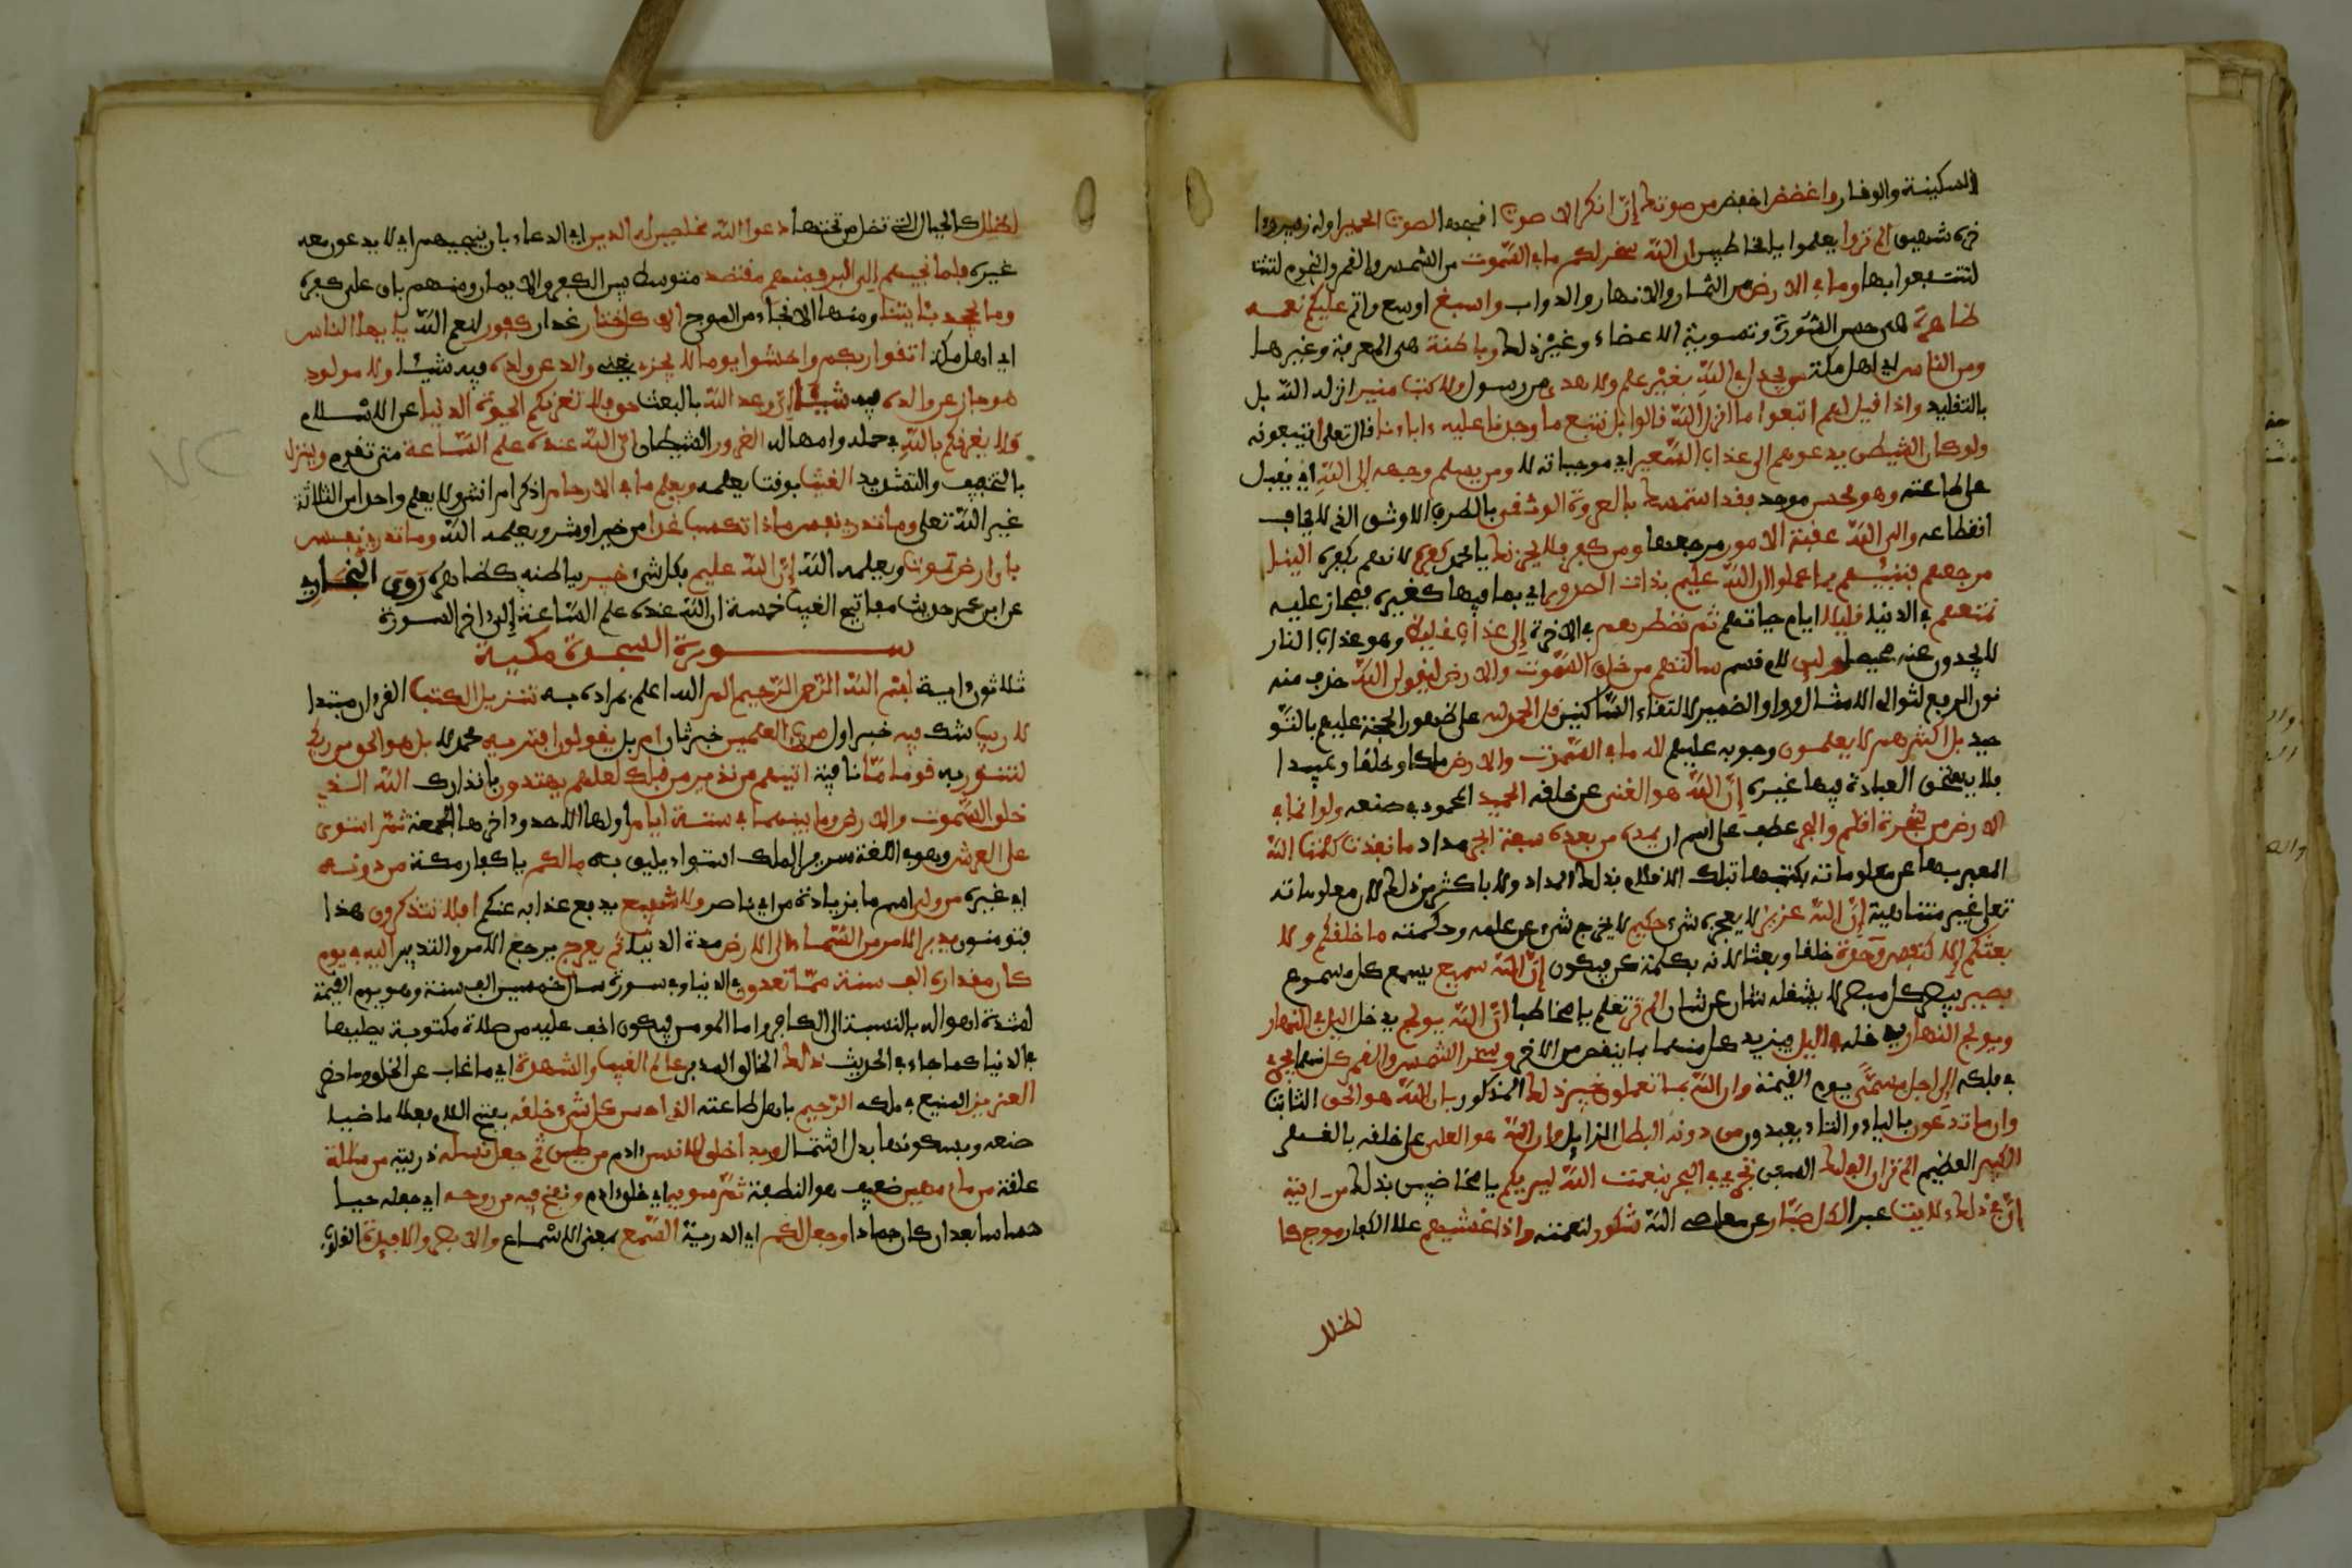 السكينة والوقار واغضض اخفض من صوتك إنّ انكر الاصوات اقبحها لصوت الحمير اوله زفير واا
خره شهيق الم تروا يعلموا يا مخاطبين ان الله سخر لكم ما في السموت من الشمس والقمر والنجوم لتنتـ
لتنتفعوا بها وما في الارض من الثمار والانهار والدواب واسبغ اوسع واتم عليكم نعمه
ظاهرة هي حسن الصورة وتسوية الاعضاء وغير ذلك وباطنة هي المعرفة وغيرها
ومن الناس اي اهل مكة من يجدل في الله بغير علم ولا هدى من رسول ولا كتب منير انزله الله بل
بالتقليد واذا قيل لهم اتبعوا ما انزل الله قالوا بل نتبع ما وجدنا عليه ءاباءنا قال تعلى ايتبعونه
ولو كان الشيطن يدعوهم الى عذاب السعير اي موجباته لا ومن يسلم وجهه إلى الله اي يقبل
على طاعته وهو محسن موحد فقد استمسك بالعروة الوثقى بالطرف الاوثق الذي لا يخاف
انقطاعه والى الله عقبة الامور مرجعها ومن كفر فلا يحزنك يا محمد كفره لا تهتم بكفره الينا
مرجعهم فننبئهم بما عملوا ان الله عليم بذات الصدور اي بما فيها كغيره فمجاز عليه
نمتعهم في الدنيا قليلا ايام حياتهم ثم نضطرهم في الاخرة إلى عذاب غليظ وهو عذاب النار
لا يجدون عنه محيصا ولئن لام قسم سالتهم من خلق السموت والارض ليقولن الله حذف منه
نون الرفع لتوالي الامثال وواو الضمير لالتقاء الساكنين قل الحمد لله على ظهور الحجة عليهم بالتو
حيد بل اكثرهم لا يعلمون وجوبه عليهم لله ما في السموت والارض ملكا وخلقا وعبيدا
فلا يستحق العبادة فيها غيره إنّ الله هو الغني عن خلقه الحميد المحمود في صنعه ولو انما في
الارض من شجرة اقلم والبحر عطف على اسم ان يمده من بعده سبعة ابحر مدادا ما نفدت كلمت الله
المعبر بها عن معلوماته بكتبها بتلك الاقلام بذلك المداد ولا باكثر من ذلك لان معلوماته
تعلى غير متناهية إنّ الله عزيز لا يعجزه شيء حكيم لا يخرج شيء عن علمه وحكمته ما خلقكم ولا
بعثكم إلا كنفس وحدة خلقا وبعثا لانه بكلمة كن فيكون إنّ الله سميع يسمع كل مسموع
بصير يبصر كل مبصر لا يشغله شان عن شان الم تر تعلم يا مخاطبا انّ الله يولج يدخل اليل في النهار
ويولج النهار يدخله في اليل فيزيد كل منهما بما ينقص من الاخر وسخر الشمس والقمر كل منهما يجري
في فلكه إلى اجل مسمى يوم القيمة وان الله بما تعملون خبير ذلك المذكور بان الله هو الحق الثابت
وان ما تدعون بالياء والتاء يعبدون من دونه البطل الزايل وان الله هو العلي على خلقه بالقهر
الكبير العظيم الم تر ان الفلك السفن تجري في البحر بنعمت الله ليريكم يا مخاطبين بذلك من ءايته
إنّ في ذلك ءلايت عبرا لكل صبّار عن معاصي الله شكور لنعمته واذا غشيهم علا الكفار موج كا
لظلل
لظلل كالجبال التي تظل من تحتها دعوا الله مخلصين له الدين اي الدعاء بان ينجيهم اي لا يدعون معه
غيره فلما نجيهم إلى البر فمنهم مقتصد متوسط بين الكفر والايمان ومنهم باق على كفره
وما يجحد بئايتنا ومنها الانجاء من الموج إلا كل ختار غدار كفور لنعم الله يا يها الناس
اي اهل مكة اتقوا ربكم واخشوا يوما لا يجزي يغني والد عن ولده فيه شيئا ولا مولود
هو جاز عن والده فيه شيئا إنّ وعد الله بالبعث حق فلا تغرنكم الحيوة الدنيا عن الاسلام
ولا يغرنكم بالله في حلمه وامهاله الغرور الشيطان انّ الله عنده علم السّاعة متى تقوم وينزل
بالتخفيف والتشديد الغيث بوقت يعلمه ويعلم ما في الارحام اذكر ام انثى ولا يعلم واحدا من الثلاثة
غير الله تعلى وما تدري نفس ماذا تكسب غدا من خير او شر ويعلمه الله وما تدري نفس
باي ارض تموت ويعلمه الله إنّ الله عليم بكل شيء خبير بباطنه كظاهره روى البخاري
عن ابن عمر حديث مفاتيح الغيب خمسة ان الله عنده علم السّاعة إلى ءاخر السورة
ســـورة السجدة مكية
ثلاثون ءاية بسم الله الرّحمن الرّحيم الم الله اعلم بمراده به تنزيل الكتب القرءان مبتدا
لا ريب شك فيه خبر اول من رب العلمين خبر ثان ام بل يقولون افتريه محمد لا بل هو الحق من ربك
لتنذر به قوما مّا نافية اتيهم من نذير من قبلك لعلهم يهتدون بانذارك الله الذي
خلق السموت والارض وما بينهما في ستة ايام اولها الاحد وءاخرها الجمعة ثمّ استوى
على العرش وهو في اللغة سرير الملك استواء يليق به ما لكم يا كفار مكة من دونه
اي غيره من ولي اسم ما بزيادة من اي ناصر ولا شفيع يدفع عذابه عنكم افلا تتذكرون هذا
فتومنون يدبر الامر من السّماء إلى الارض مدة الدنيا ثم يعرج يرجع الامر والتدبير اليه في يوم
كان مقداره الف سنة ممّا تعدون في الدنيا وفي سورة سال خمسين الف سنة وهو يوم القيمة
لشدة اهواله بالنسبة الى الكافر واما المومن فيكون اخف عليه من صلاة مكتوبة يصليها
في الدنيا كما جاء في الحديث ذلك الخالق المدبر عالم الغيب والشهدة اي ما غاب عن الخلق وما حضر
العزيز المنيع في ملكه الرّحيم باهل طاعته الذي احسن كل شيء خلقه بفتح اللام فعلا ماضيا
صنعه وبسكونها بدل اشتمال وبدا خلق الانسن ءادم من طين ثم جعل نسله ذريته من سللة
علقة من ماء مهين ضعيف هو النطفة ثمّ سويه اي خلق ءادم ونفخ فيه من روحه اي جعله حيا
حساسا بعد ان كان جمادا وجعل لكم اي الذرية السّمع بمعنى الاسماع والابصر والافئدة القلوب